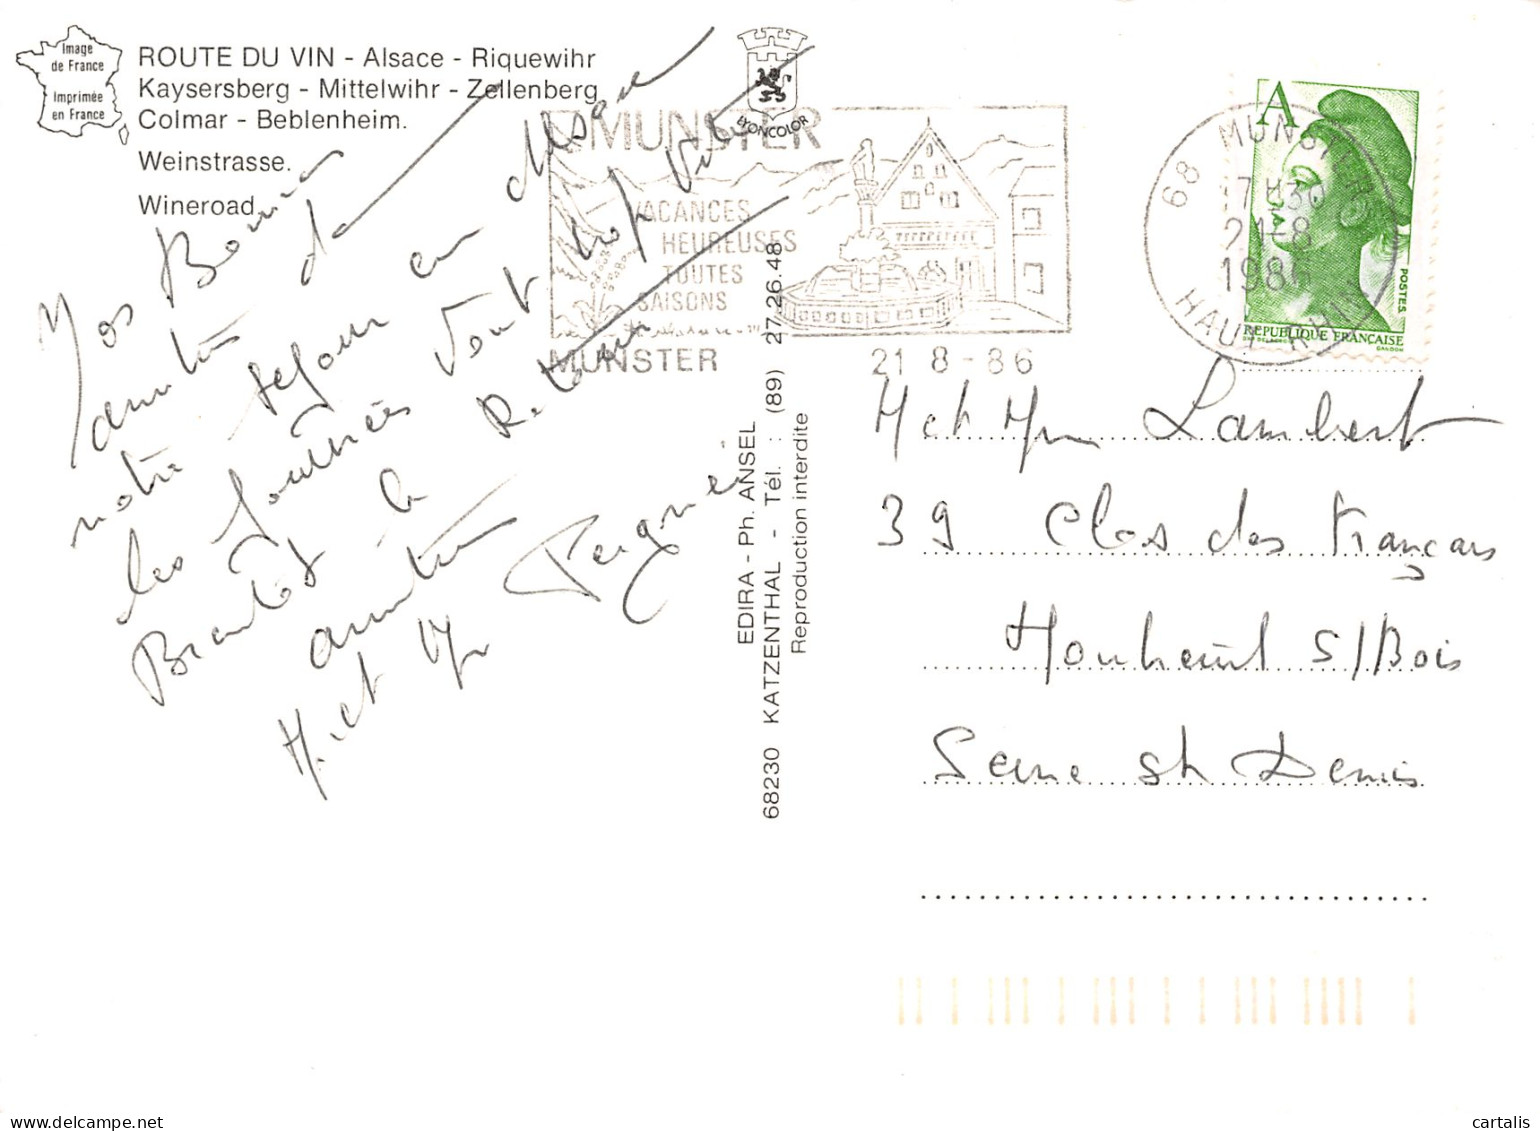 Image
de France
Imprimée
en France
ROUTE DU VIN - Alsace - Riquewihr
Kaysersberg - Mittelwihr - Zellenberg
Colmar - Beblenheim.
Weinstrasse.
Wineroad.
LYONCOLOR
MUNSTER
VACANCES
HEUREUSES
TOUTES
SAISONS
MUNSTER
21 8 - 86
68 MUNSTER
17H30
21-8
1986
HAUT RHIN
A
POSTES
REPUBLIQUE FRANÇAISE
GANDON
Nos Bonnes
amitiés de
notre séjour en Alsace
les journées vont trop vite
Bientôt le Retour
amitiés
M. et Me Peigné
EDIRA - Ph. ANSEL
68230 KATZENTHAL - Tél. : (89) 27.26.48
Reproduction interdite
M et Mme Lambert
39 Clos des Français
S/Bois
Seine St Denis
cartalis